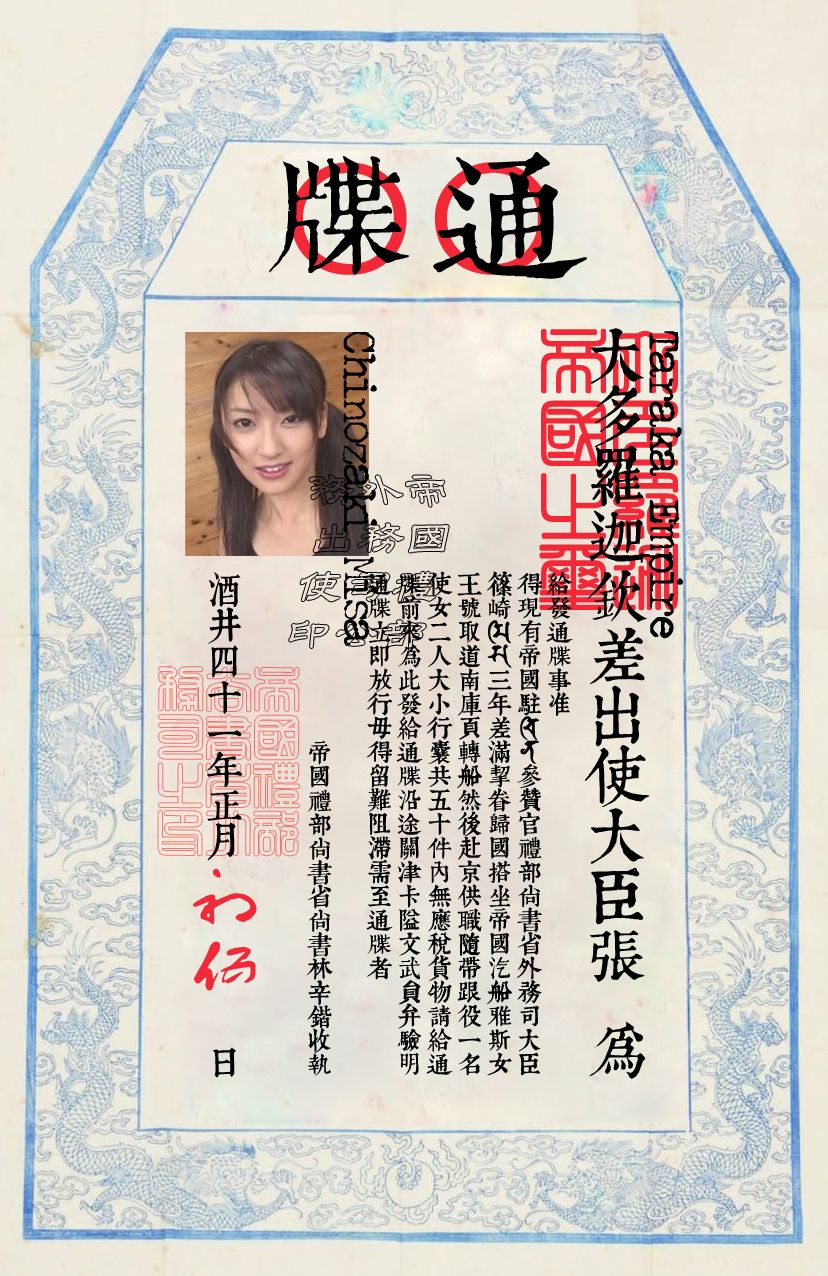 通牒
Taraka Empire
大多羅迦欽差出使大臣張 為
帝國之璽
給發通牒事准
得現有帝國駐參贊官禮部尚書省外務司大臣
篠崎三年差滿挈眷歸國搭坐帝國汽船雅斯女
王號取道南庫頁轉船然後赴京供職隨帶跟役一名
使女二人大小行囊共五十件內無應稅貨物請給通
牒前來為此發給通牒沿途關津卡隘文武員弁驗明
通牒立即放行毋得留難阻滯需至通牒者
帝國禮部
外務司公
務出使印
Chinozaki Misa
帝國禮部尚書省尚書林辛鍇收執
帝國禮部
尚書省外
務司之印
酒井四十一年正月初伍 日